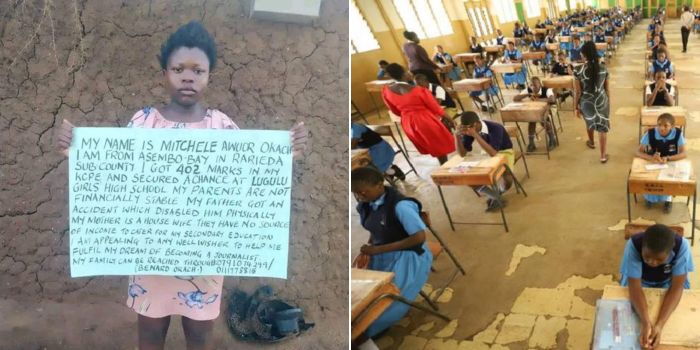 MY NAME IS MITCHELE AWUOR OKACH
I AM FROM ASEMBO-BAY IN RARIEDA
SUB COUNTY I GOT 402 MARKS IN MY
KCPE AND SECURED A CHANCE AT LUGULU
GIRLS HIGH SCHOOL MY PARENTS ARE NOT
FINANCIALLY STABLE MY FATHER GOT AN
ACCIDENT WHICH DISABLED HIM PHYSICALLY
MY MOTHER IS A HOUSE WIFE THEY HAVE NO SOURCE
OF INCOME TO CATER FOR MY SECONDARY EDUCATION
I AM APPEALING TO ANY WELL WISHER TO HELP ME
FULFIL MY DREAM OF BECOMING A JOURNALIST
MY FAMILY CAN BE REACHED THROUGH
(BENARD OKACH-)